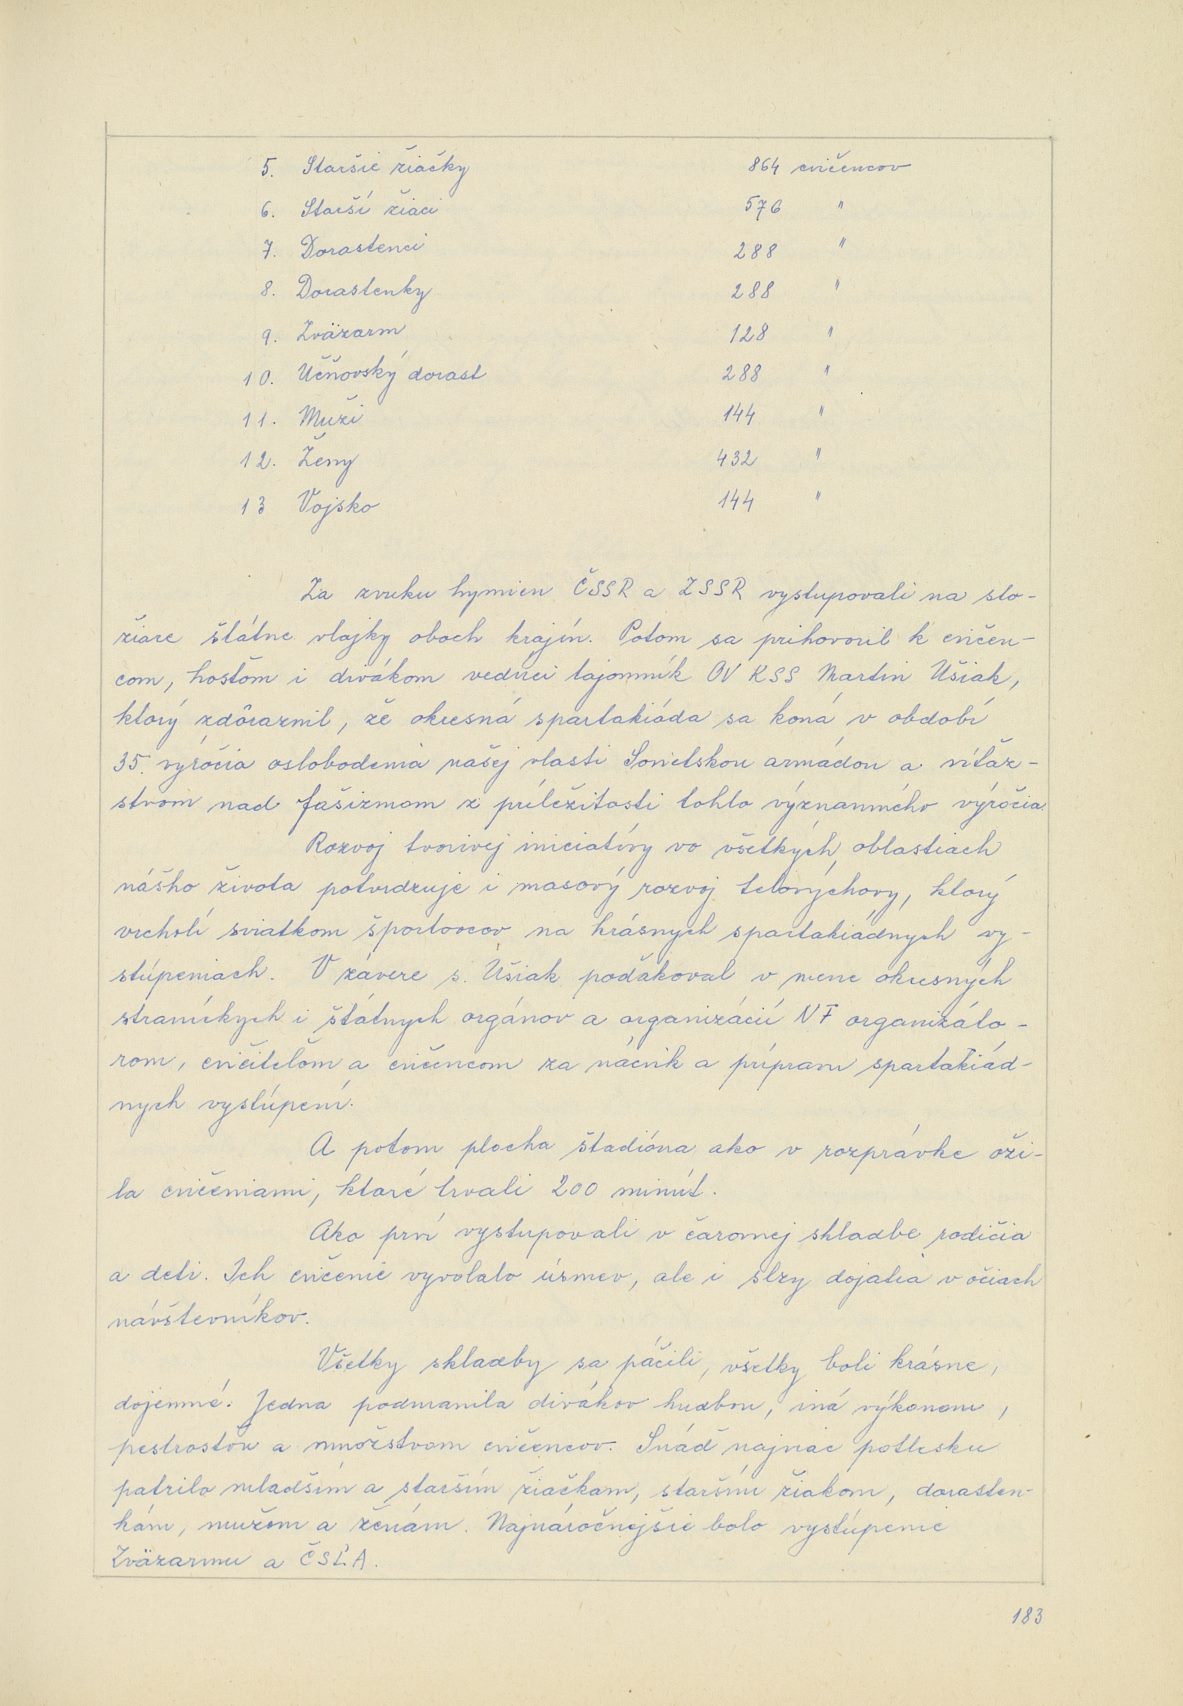 5. Staršie žiačky 864 cvičencov
6. Starší žiaci 576 "
7. Dorastenci 288 "
8. Dorastenky 288 "
9. Zväzarm 128 "
10. Učňovský dorast 288 "
11. Muži 144 "
12. Ženy 432 "
13 Vojsko 144 "
Za zvuku hymien ČSSR a ZSSR vystupovali na sto-
žiare štátne vlajky oboch krajín. Potom sa prihovoril k cvičen-
com, hosťom i divákom vedúci tajomník OV KSS Martin Ušiak,
ktorý zdôraznil, že okresná spartakiáda sa koná v období
35. výročia oslobodenia našej vlasti Sovietskou armádou a víťaz-
stvom nad fašizmom z príležitosti tohto významného výročia.
Rozvoj tvorivej iniciatívy vo všetkých oblastiach
nášho života potvrdzuje i masový rozvoj telovýchovy, ktorý
vrcholí sviatkom športovcov na krásnych spartakiádnych vy-
stúpeniach. V závere s. Ušiak poďakoval v mene okresných
straníckych i štátnych orgánov a organizácií NF organizáto-
rom, cvičiteľom a cvičencom za nácvik a prípravu spartakiád-
nych vystúpení.
A potom plocha štadióna ako v rozprávke oži-
la cvičeniami, ktoré trvali 200 minút.
Ako prví vystupovali v čarovnej skladbe rodičia
a deti. Ich cvičenie vyvolalo úsmev, ale i slzy dojatia v očiach
návštevníkov.
Všetky skladby sa páčili, všetky boli krásne,
dojemné. Jedna podmanila divákov hudbou, iná výkonom,
pestrosťou a množstvom cvičencov. Snáď najviac potlesku
patrilo mladším a starším žiačkam, starším žiakom, dorasten-
kám, mužom a ženám. Najnáročnejšie bolo vystúpenie
Zväzarmu a ČSĽA.
183